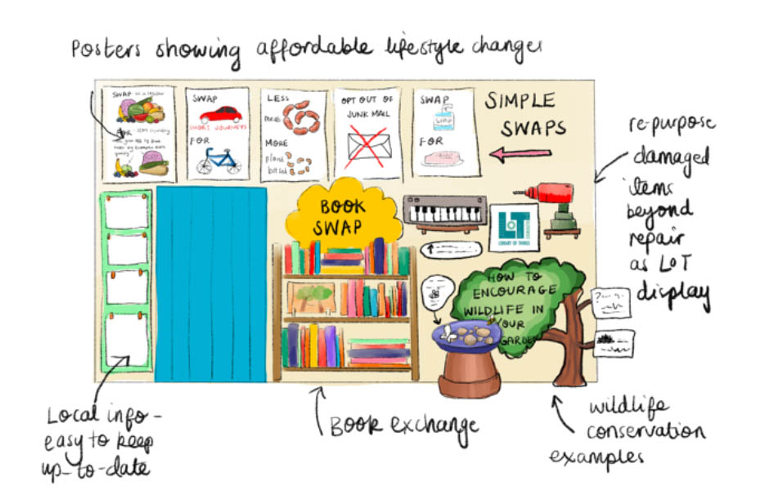 Posters showing affordable lifestyle changes
SWAP
FOR
SWAP
SHORT JOURNEYS
FOR
LESS
meat
MORE
plant
based
OPT OUT OF
JUNK MAIL
SWAP
SOAP
FOR
SIMPLE
SWAPS
re-purpose
damaged
items
beyond
repair
as LoT
display
BOOK
SWAP
LoT
LIBRARY OF THINGS
HOW TO
ENCOURAGE
WILDLIFE IN
YOUR
GARDEN
Local info -
easy to keep
up-to-date
Book exchange
wildlife
conservation
examples